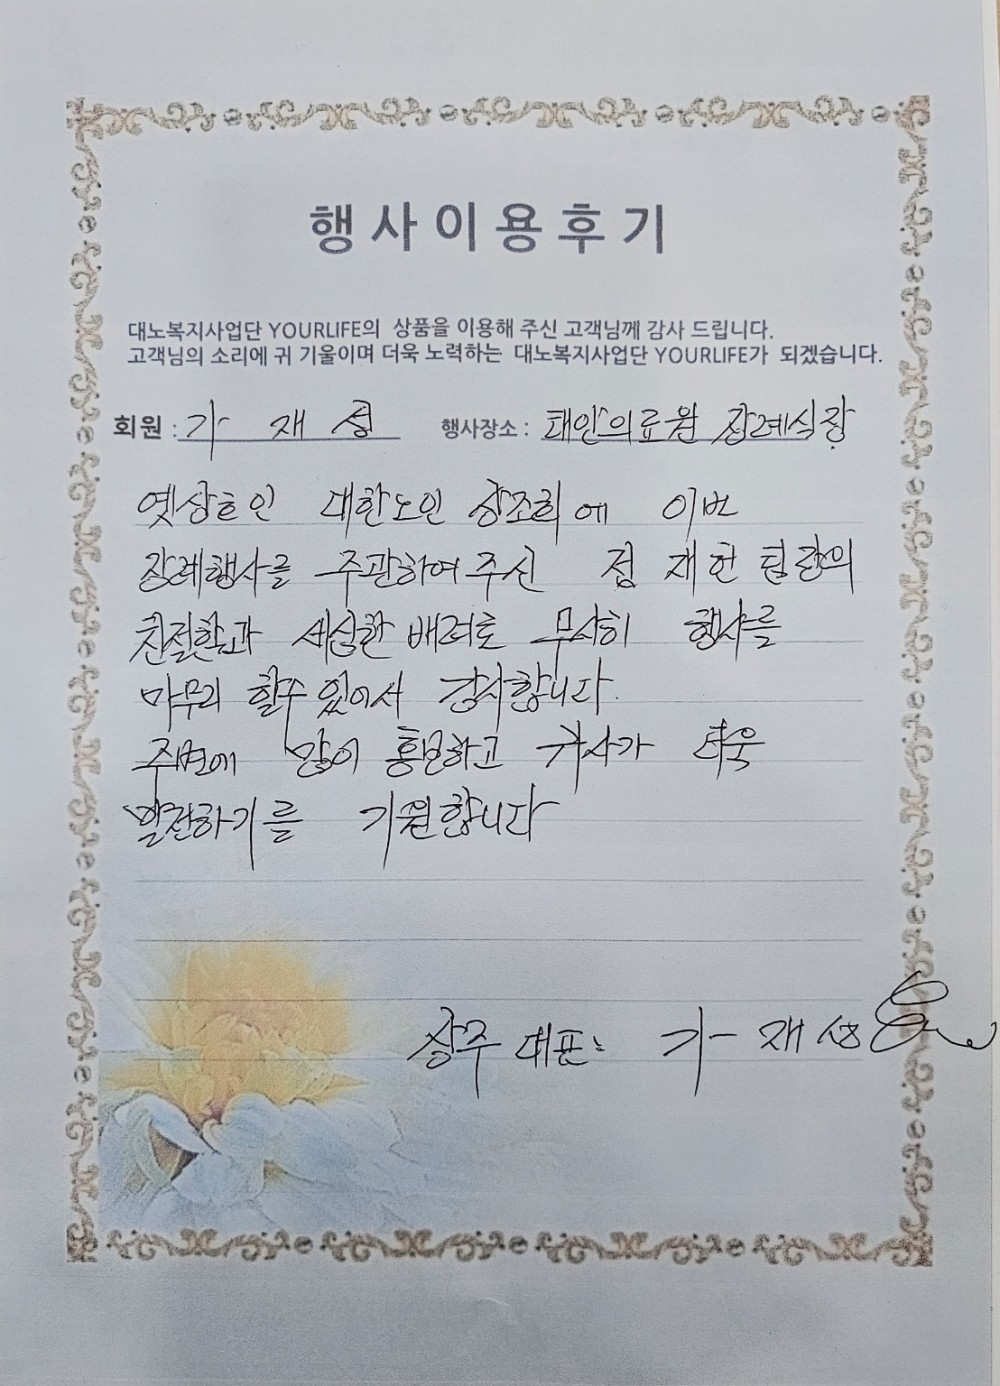 행사이용후기
대노복지사업단 YOURLIFE의 상품을 이용해 주신 고객님께 감사 드립니다.
고객님의 소리에 귀 기울이며 더욱 노력하는 대노복지사업단 YOURLIFE가 되겠습니다.
회원 : 가 재 성 행사장소 : 태안의료원 장례식장
옛상호인 대한노인 상조회에 이번
장례행사를 주관하여주신 정 재 헌 팀장의
친절함과 세심한 배려로 무사히 행사를
마무리 할수 있어서 감사합니다.
주변에 많이 홍보하고 귀사가 더욱
발전하기를 기원합니다
상주 대표: 가 재 성